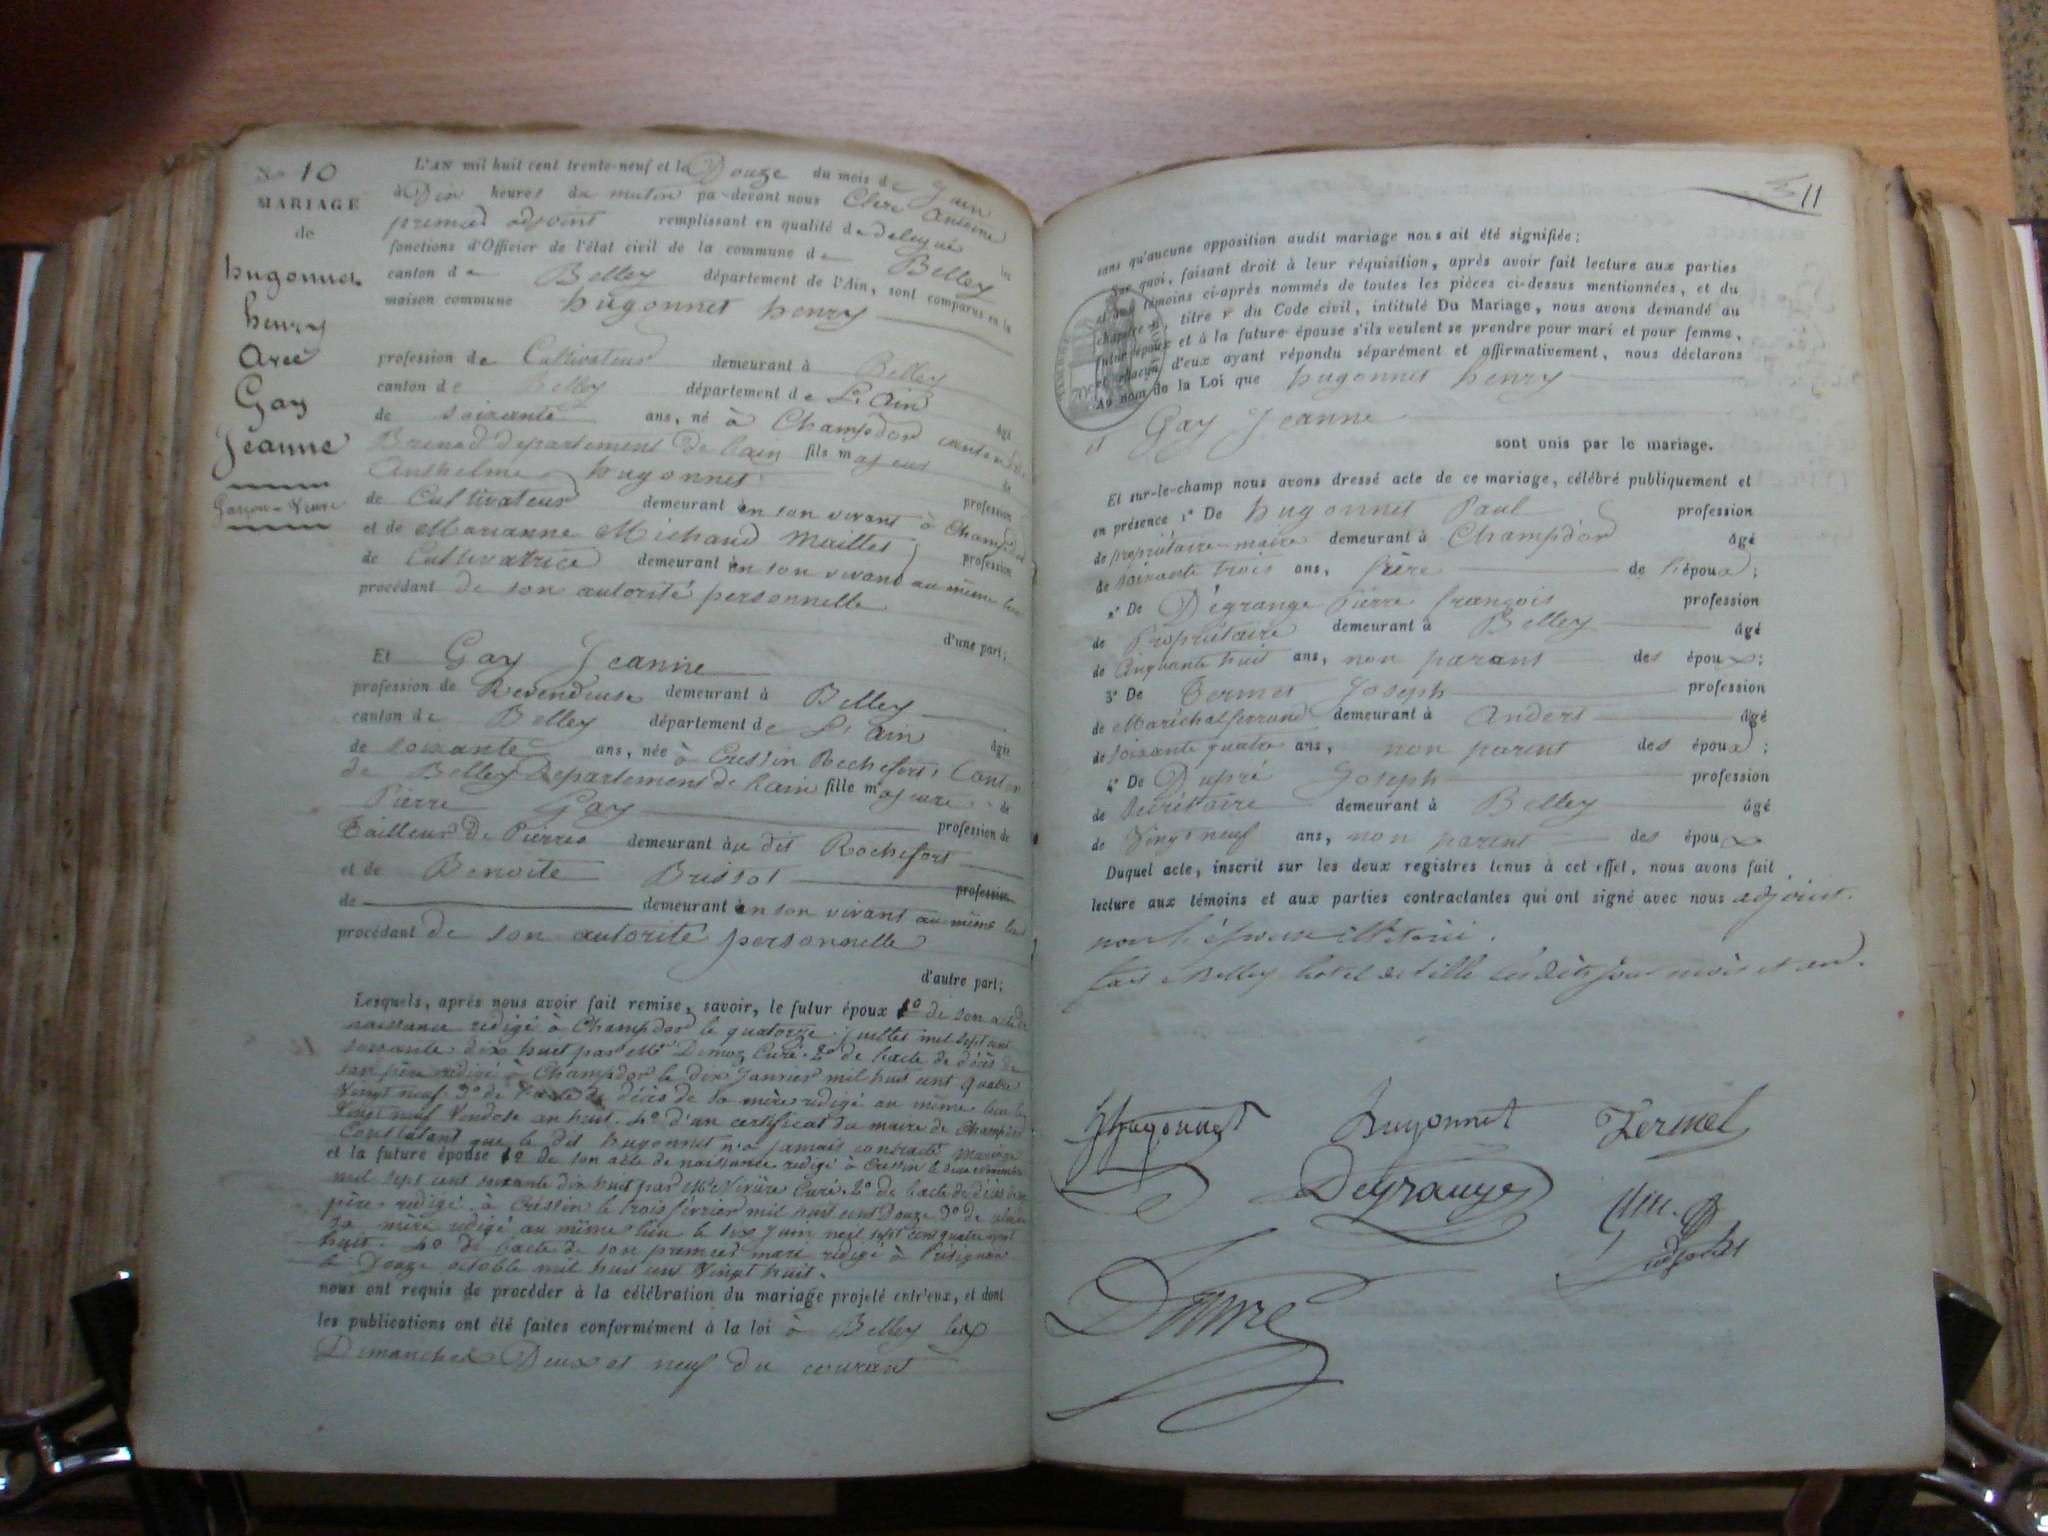 No 10
MARIAGE
de
hugonnet
henry
avec
Gay
Jeanne
Garçon - Veuve
L'AN mil huit cent trente-neuf et le Douze du mois de Juin
à Dix heures du matin par devant nous Clerc Antoine
premier adjoint remplissant en qualité de délégué les
fonctions d'Officier de l'état civil de la commune de Belley
canton de Belley département de l'Ain, sont comparus en la
maison commune hugonnet henry
profession de Cultivateur demeurant à Belley
canton de Belley département de L'Ain
âgé
de soixante ans, né à Champdor canton de
Brenod departement de lain fils majeur de
Anthelme hugonnet profession
de Cultivateur demeurant en son vivant à Champdor
et de Marianne Michaud Maillet profession
de Cultivatrice demeurant en son vivant au même lieu
procédant de son autorité personnelle
d'une part;
Et Gay Jeanne
profession de Revendeuse demeurant à Belley
canton de Belley département de L'Ain âgée
de soixante ans, née à Cressin Rochefort, Canton
de Belley Departement de lain fille majeure de
Pierre Gay profession de
Tailleur de Pierres demeurant au dit Rochefort
et de Benoite Brissot profession
de demeurant en son vivant au même lieu
procédant de son autorité personnelle
d'autre part;
Lesquels, après nous avoir fait remise, savoir, le futur époux 1o de son acte de
naissance redigé à Champdor le quatorze Juillet mil sept cent
soixante dix huit par Mr Curé. 2o de lacte de décès de
son père redigé à Champdor le dix Janvier mil huit cent quatre
Vingt neuf 3o de l'acte de décès de sa mère redigé au même lieu le
Vingt neuf Vendose an huit. 4o d'un certificat du maire de Champdor
Constatant que le dit hugonnet n'a jamais contracté Mariage
et la future épouse 1o de son acte de naissance redigé à Cressin le
mil sept cent soixante dix huit par Mr Curé. 2o de lacte de décès de son
père redigé à Cressin le trois février mil huit cent Douze 3o de celui de
sa mère redigé au même lieu le six Juin mil sept cent quatre vingt
huit. 4o de lacte de son premier mari redigé à
le Douze octobre mil huit cent Vingt huit.
nous ont requis de procéder à la célébration du mariage projeté entr'eux, et dont
les publications ont été faites conformément à la loi à Belley les
Dimanches Deux et neuf du courant
11
sans qu'aucune opposition audit mariage nous ait été signifiée;
Sur quoi, faisant droit à leur réquisition, après avoir fait lecture aux parties
et aux témoins ci-après nommés de toutes les pièces ci-dessus mentionnées, et du
chapitre titre v du Code civil, intitulé Du Mariage, nous avons demandé au
futur époux et à la future épouse s'ils veulent se prendre pour mari et pour femme,
et chacun d'eux ayant répondu séparément et affirmativement, nous déclarons
Au nom de la Loi que hugonnet henry
et Gay Jeanne
sont unis par le mariage.
Et sur-le-champ nous avons dressé acte de ce mariage, célébré publiquement et
en présence 1o De hugonnet Paul profession
de propriétaire-maire demeurant à Champdor âgé
de soixante trois ans, frère de l'époux;
2o De Dégrange Pierre françois profession
de Propriétaire demeurant à Belley âgé
de Cinquante huit ans, non parent des époux;
3o De Termet Joseph profession
de Maréchal ferrand demeurant à Andert âgé
de soixante quatre ans, non parent des époux;
4o De Dupré Joseph profession
de Secrétaire demeurant à Belley âgé
de Vingt neuf ans, non parent des époux
Duquel acte, inscrit sur les deux registres tenus à cet effet, nous avons fait
lecture aux témoins et aux parties contractantes qui ont signé avec nous adjoint.
non l'épouse illitérée.
fait Belley hotel de ville lesdits jour mois et an.
hhugonnet hugonnet Termet
Degranges
adjoint
Dupré